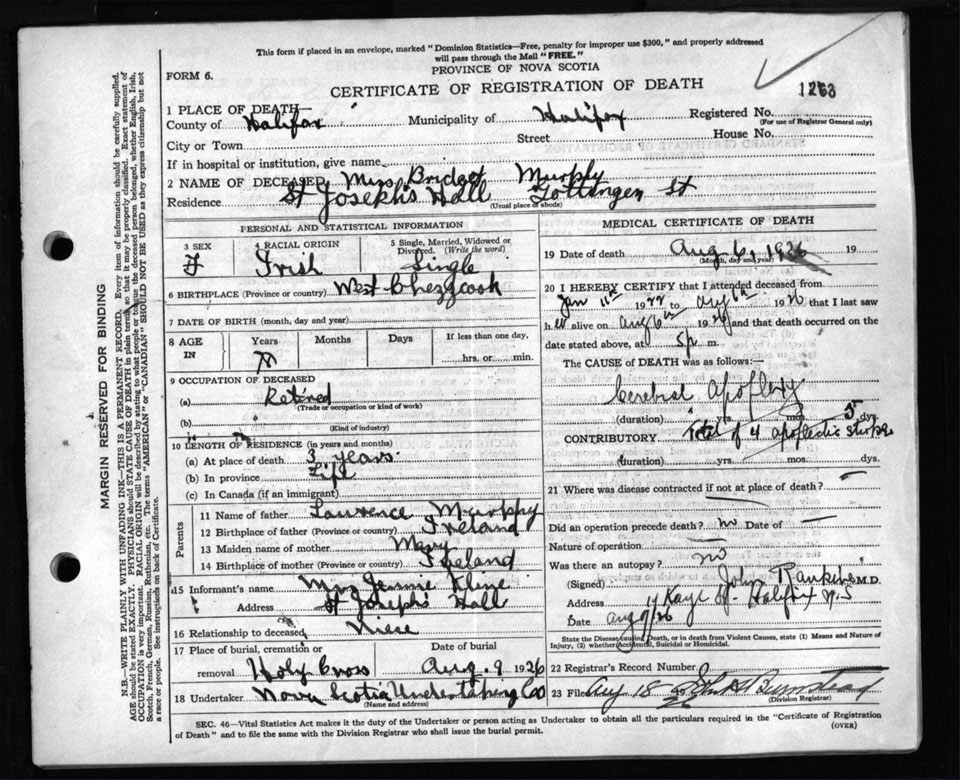 This form if placed in an envelope, marked "Dominion Statistics—Free, penalty for improper use $300," and properly addressed
will pass through the Mail "FREE."
FORM 6.
PROVINCE OF NOVA SCOTIA
CERTIFICATE OF REGISTRATION OF DEATH
1263
1 PLACE OF DEATH—
County of Halifax Municipality of Halifax Registered No.
(For use of Registrar General only)
City or Town Street House No.
If in hospital or institution, give name
2 NAME OF DECEASED Miss Bridget Murphy
Residence St Joseph's Hall Gottingen St
(Usual place of abode)
PERSONAL AND STATISTICAL INFORMATION
3 SEX 4 RACIAL ORIGIN 5 Single, Married, Widowed or Divorced. (Write the word)
F Irish Single
6 BIRTHPLACE (Province or country) West Chezzcook
7 DATE OF BIRTH (month, day and year)
8 AGE IN Years Months Days If less than one day,
hrs. or min.
9 OCCUPATION OF DECEASED
(a) Retired
(Trade or occupation or kind of work)
(b)
(Kind of industry)
10 LENGTH OF RESIDENCE (in years and months)
(a) At place of death 3 years
(b) In province Life
(c) In Canada (if an immigrant)
Parents
11 Name of father Lawrence Murphy
12 Birthplace of father (Province or country) Ireland
13 Maiden name of mother Mary
14 Birthplace of mother (Province or country) Ireland
15 Informant's name Mrs Jennie Kline
Address St Joseph's Hall
16 Relationship to deceased Niece
17 Place of burial, cremation or removal Date of burial
Holy Cross Aug. 9 1926
18 Undertaker Nova Scotia Undertaking Coo
(Name and address)
MEDICAL CERTIFICATE OF DEATH
19 Date of death Aug 6, 1926 19
(Month, day and year)
20 I HEREBY CERTIFY that I attended deceased from
Jan 11th 1922 to Aug 6th 1926 that I last saw
h er alive on Aug 6th 1926 and that death occurred on
date stated above, at 5 p m.
The CAUSE of DEATH was as follows:—
Cerebral Apoplexy
(duration) yrs. mos. 5 dys.
CONTRIBUTORY Total of 4 apoplectic strokes
(duration) yrs. mos. dys.
21 Where was disease contracted if not at place of death?
Did an operation precede death? no Date of
Nature of operation
Was there an autopsy? no
(Signed) John Rankine M.D.
Address Kaye St. Halifax N.S
Date Aug 9/26
State the Disease causing Death, or in death from Violent Causes, state (1) Means and Nature of
Injury, (2) whether Accidental, Suicidal or Homicidal.
22 Registrar's Record Number
23 Filed Aug 18 26
(Division Registrar)
SEC. 46—Vital Statistics Act makes it the duty of the Undertaker or person acting as Undertaker to obtain all the particulars required in the "Certificate of Registration
of Death" and to file the same with the Division Registrar who shall issue the burial permit.
(OVER)
MARGIN RESERVED FOR BINDING
N.B.—WRITE PLAINLY WITH UNFADING INK—THIS IS A PERMANENT RECORD. Every item of information should be carefully supplied.
AGE should be stated EXACTLY. PHYSICIANS should STATE CAUSE OF DEATH in plain terms, so that it may be properly classified. Exact statement of
OCCUPATION is very important. RACIAL ORIGIN will be described by stating to what people or tongue the deceased person belonged, whether English, Irish,
Scotch, French, German, Russian, Ruthenian, etc. The terms "AMERICAN" or "CANADIAN" SHOULD NOT BE USED as they express citizenship but not
a race or people. See instructions on back of Certificate.